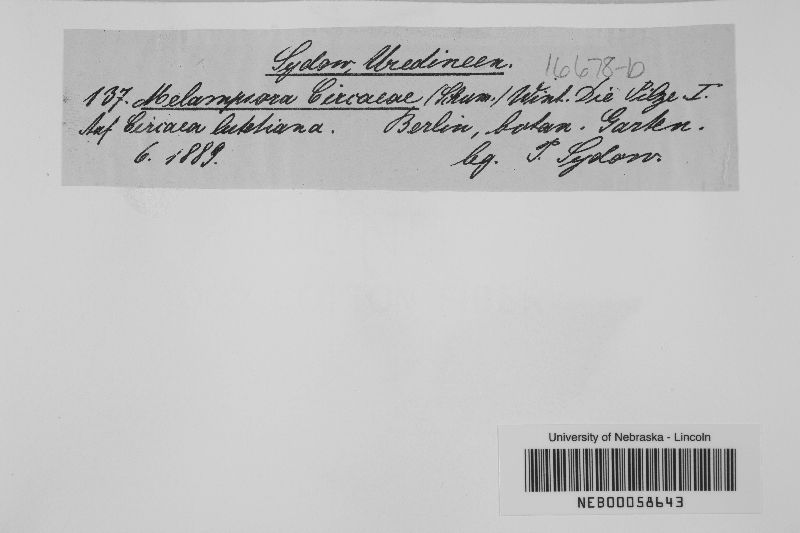 Sydow, Uredineen.
16678-b
137. Melampsora Circaeae /Schum./ Wint. Die Pilze I.
Auf Circaea lutetiana. Berlin, botan. Garten.
6. 1889. lg. P. Sydow.
University of Nebraska - Lincoln
NEB00058643